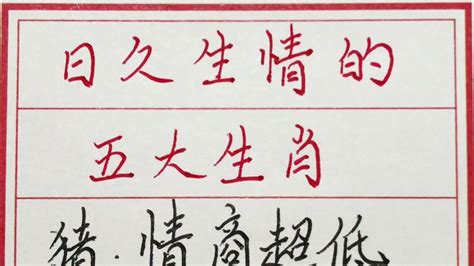 日久生情的
五大生肖
猪·情商超低